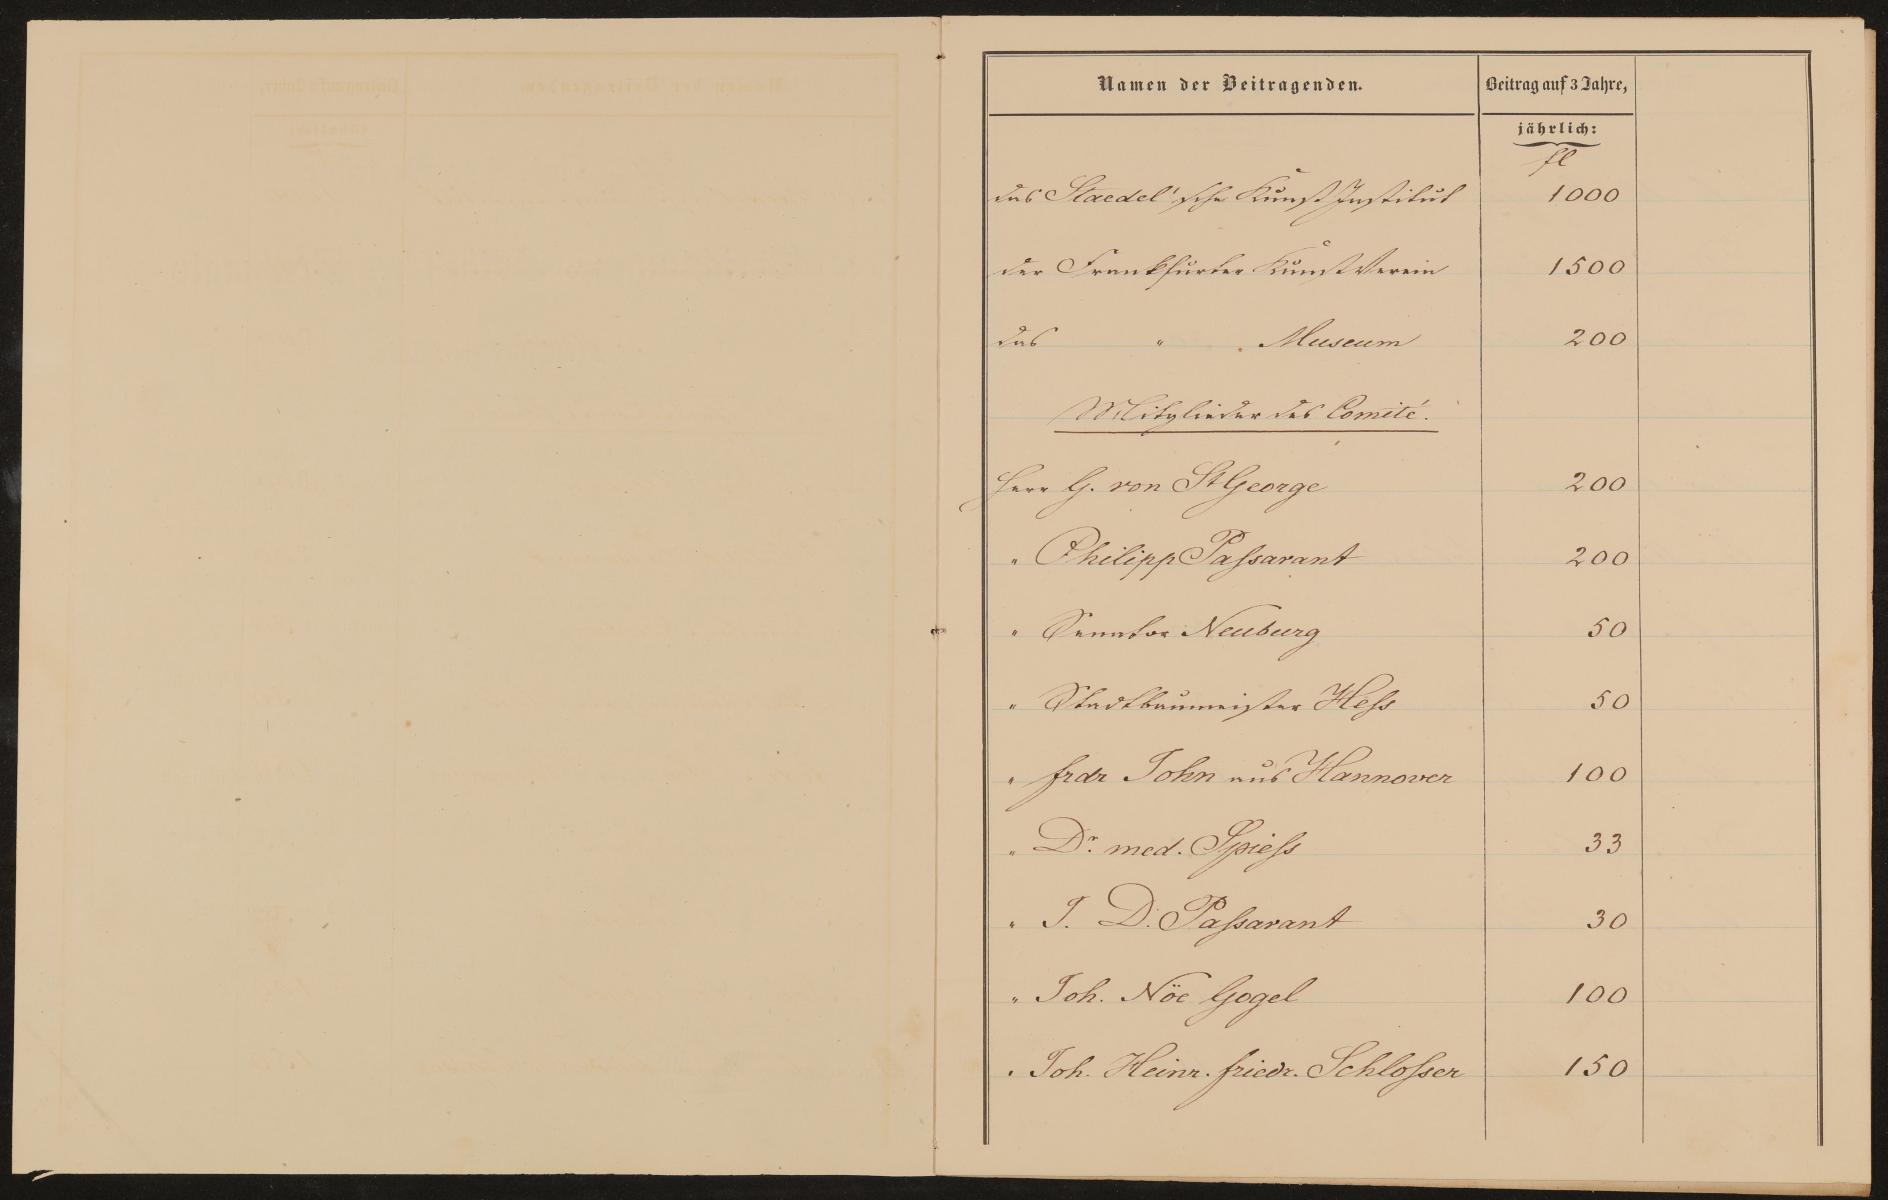 Namen der Beitragenden. Beitrag auf 3 Jahre,
jährlich:
fl
das Staedel'sche Kunst Institut 1000
der Frankfurter Kunst Verein 1500
das " Museum 200
Mitglieder des Comité.
Herr G. von St George 200
" Philipp Paſsavant 200
" Senator Neuburg 50
" Stadtbaumeister Heſs 50
" frdr John aus Hannover 100
" Dr. med. Spieſs 33
" J. D. Paſsavant 30
" Joh. Nöe Gogel 100
" Joh. Heinr. friedr. Schloſser 150